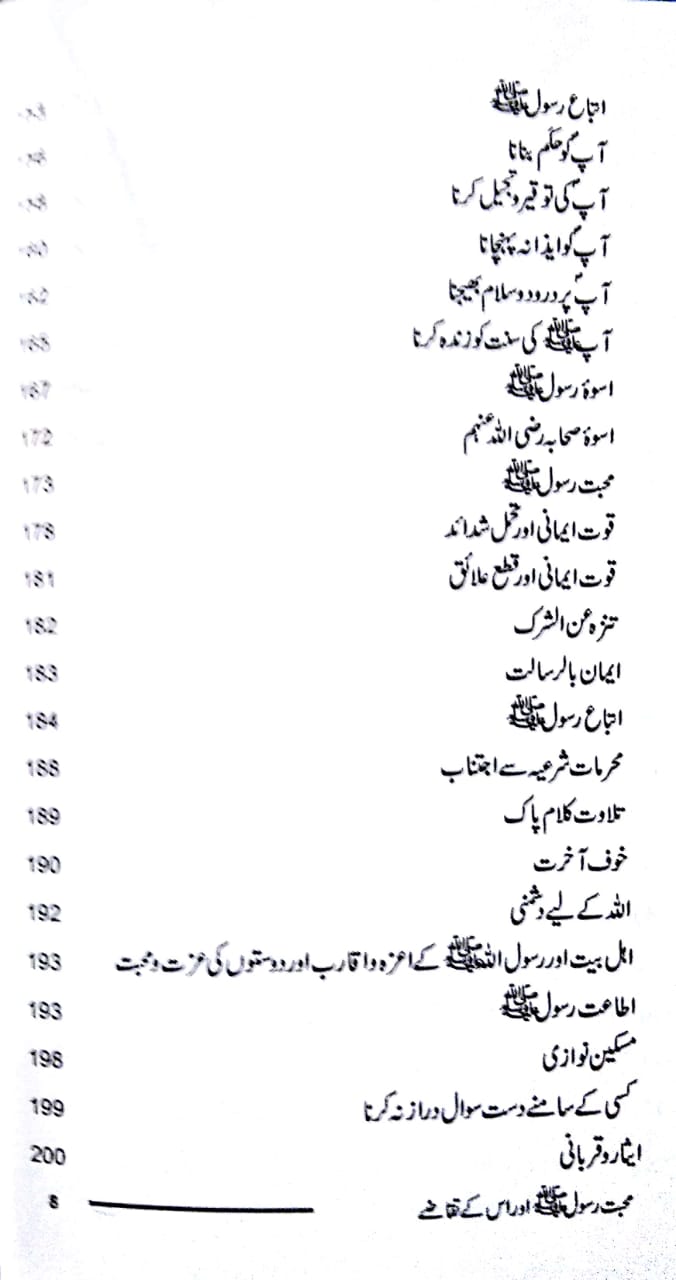 اتباع رسول ﷺ
آپؐ کو حَکم بنانا
آپؐ کی توقیر و تبجیل کرنا
آپؐ کو ایذا نہ پہنچانا
آپؐ پر درود و سلام بھیجنا
آپ ﷺ کی سنت کو زندہ کرنا
اسوۂ رسول ﷺ 167
اسوۂ صحابہ رضی اللہ عنہم 172
محبت رسول ﷺ 173
قوت ایمانی اور تحمل شدائد 178
قوت ایمانی اور قطع علائق 181
تنزہ عن الشرک 182
ایمان بالرسالت 183
اتباع رسول ﷺ 184
محرمات شرعیہ سے اجتناب 188
تلاوت کلام پاک 189
خوف آخرت 190
اللہ کے لیے دشمنی 192
اہل بیت اور رسول اللہ ﷺ کے اعزہ و اقارب اور دوستوں کی عزت و محبت 193
اطاعت رسول ﷺ 193
مسکین نوازی 198
کسی کے سامنے دست سوال دراز نہ کرنا 199
ایثار و قربانی 200
محبت رسول ﷺ اور اس کے تقاضے 8